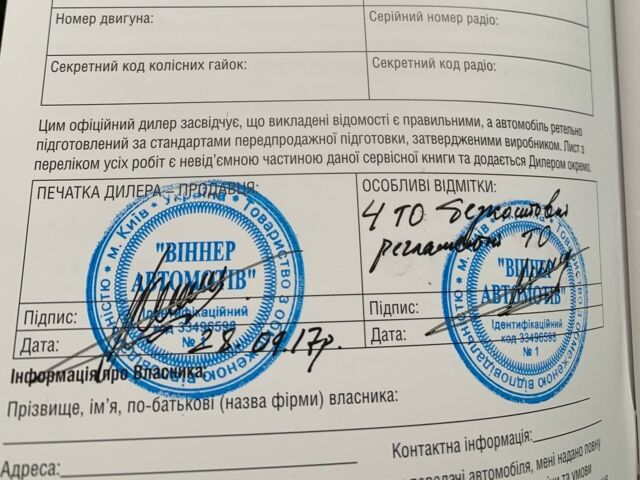 Номер двигуна:
Серійний номер радіо:
Секретний код колісних гайок:
Секретний код радіо:
Цим офіційний дилер засвідчує, що викладені відомості є правильними, а автомобіль ретельно
підготовлений за стандартами передпродажної підготовки, затвердженими виробником. Лист з
переліком усіх робіт є невід'ємною частиною даної сервісної книги та додається Дилером окремо.
ПЕЧАТКА ДИЛЕРА – ПРОДАВЦЯ:
ОСОБЛИВІ ВІДМІТКИ:
4 ТО
ТО
м. Київ * Україна * Товариство з обмеженою відповідальністю
"ВІННЕР
АВТОМОТІВ"
Ідентифікаційний
код 33496598
№
м. Київ
обмеженою відповідальністю
"ВІННЕР
АВТОМОТІВ"
Ідентифікаційний
код 33496598
№ 1
Підпис:
Підпис:
Дата:
28.09.17р.
Дата:
Інформація про Власника:
Прізвище, ім'я, по-батькові (назва фірми) власника:
Контактна інформація:
Адреса:
передачі автомобіля, мені надано повну
та умови